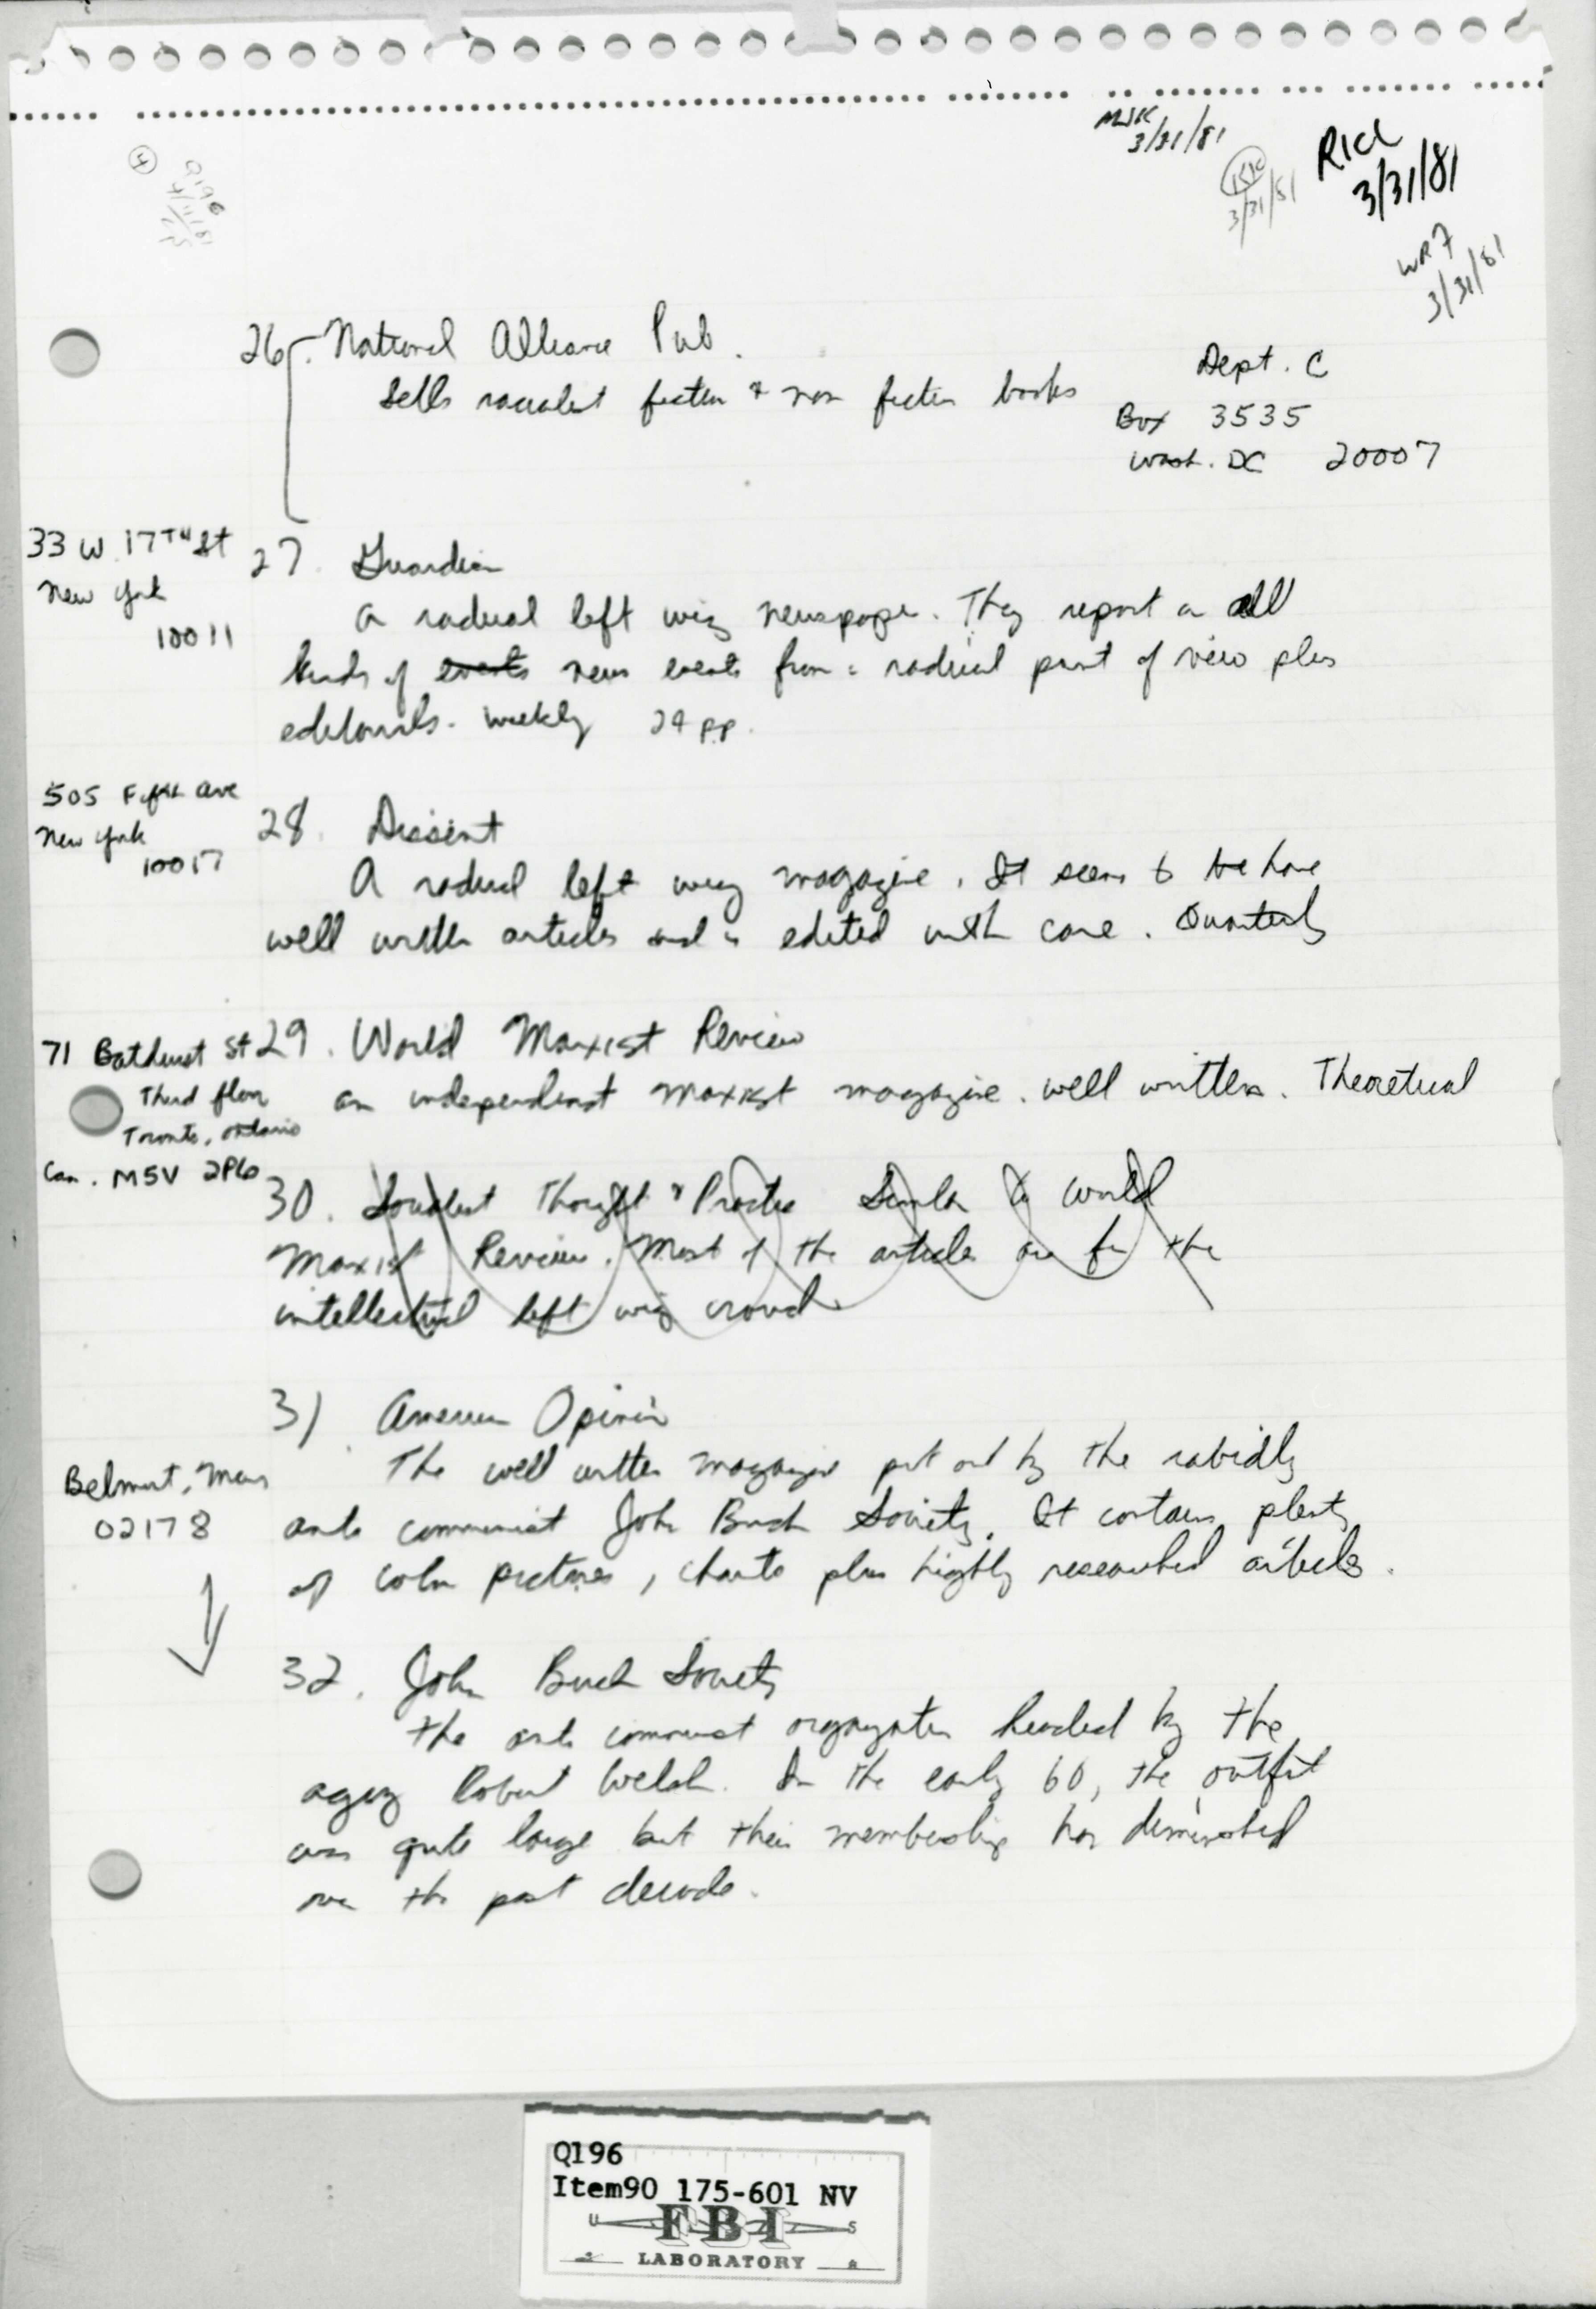 MJK
3/31/81
3/31/81
RICL
3/31/81
WR7
3/31/81
4
Q196
26. National Alliance Pub.
Sells racialist fiction & non fiction books
Dept. C
Box 3535
Wash. DC 20007
33 W. 17TH St
New York
10011
27. Guardian
A radical left wing newspaper. They report on all
kinds of events news events from a radical point of view plus
editorials. Weekly 24 pp.
505 Fifth Ave
New York
10017
28. Dissent
A radical left wing magazine. It seems to be have
well written articles and is edited with care. Quarterly
71 Bathurst St
Third floor
Toronto, Ontario
Can. M5V 2P6
29. World Marxist Review
an independent Marxist magazine. well written. Theoretical
30. Socialist Thought & Practice Similar to World
Marxist Review. Most of the articles are for the
intellectual left wing crowd
31. American Opinion
The well written magazine put out by the rabidly
anti communist John Birch Society. It contains plenty
of color pictures, charts plus highly researched articles.
Belmont, Mass
02178
32. John Birch Society
The anti communist organization headed by the
aging Robert Welch. In the early 60, the outfit
was quite large but their membership has diminished
over the past decade.
Q196
Item90 175-601 NV
U S
FBI
LABORATORY